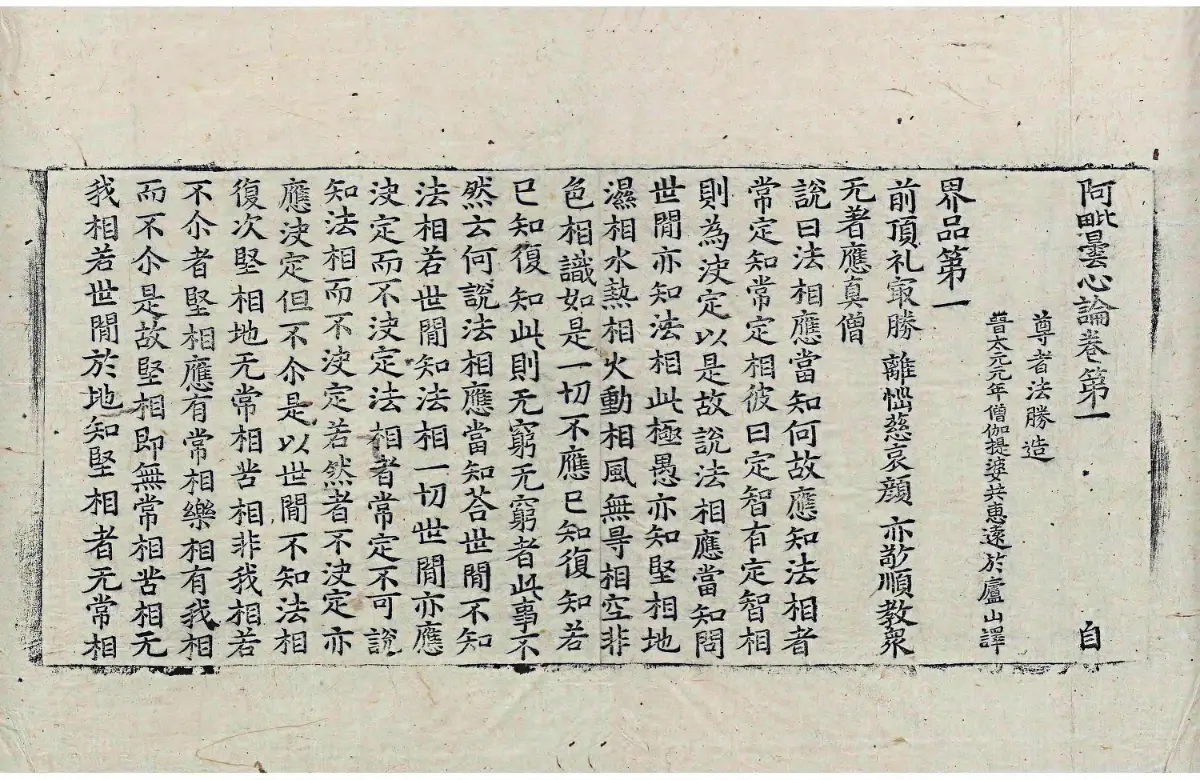 阿毗曇心論卷第一 自
尊者法勝造
晉太元元年僧伽提婆共惠遠於廬山譯
界品第一
前頂礼冣勝 離惱慈哀顔 亦敬順教衆
无著應真僧
說曰法相應當知何故應知法相者
常定知常定相彼曰定智有定智相
則為决定以是故說法相應當知問
世間亦知法相此極愚亦知堅相地
濕相水熱相火動相風無㝵相空非
色相識如是一切不應已知復知若
已知復知此則无窮无窮者此事不
然云何說法相應當知荅世間不知
法相若世間知法相一切世間亦應
决定而不决定法相者常定不可說
知法相而不决定若然者不决定亦
應决定但不尒是以世間不知法相
復次堅相地无常相苦相非我相若
不尒者堅相應有常相樂相有我相
而不尒是故堅相即無常相苦相无
我相若世間於地知堅相者无常相